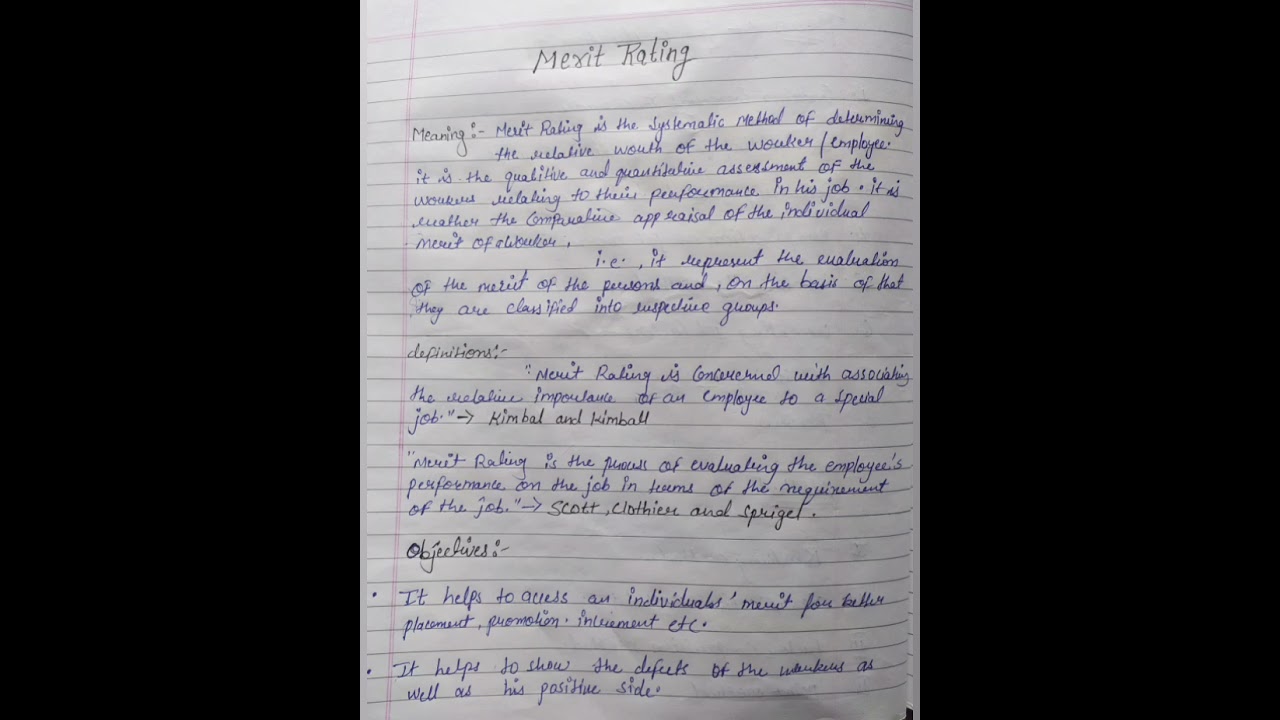 Merit Rating
Meaning:- Merit Rating is the systematic method of determining
the relative worth of the worker/employee.
it is the qualitive and quantitative assessment of the
workers relating to their performance in his job. it is
rather the comparative appraisal of the individual
merit of a worker,
i.e., it represent the evaluation
of the merit of the persons and, on the basis of that
they are classified into respective groups.
definitions:-
"Merit Rating is concerned with associating
the relative importance of an employee to a special
job." → Kimbal and Kimball
"Merit Rating is the process of evaluating the employee's
performance on the job in terms of the requirement
of the job." → Scott, Clothier and Sprigel.
Objectives:-
• It helps to access an individuals' merit for better
placement, promotion. increment etc.
• It helps to show the defects of the workers as
well as his positive side.